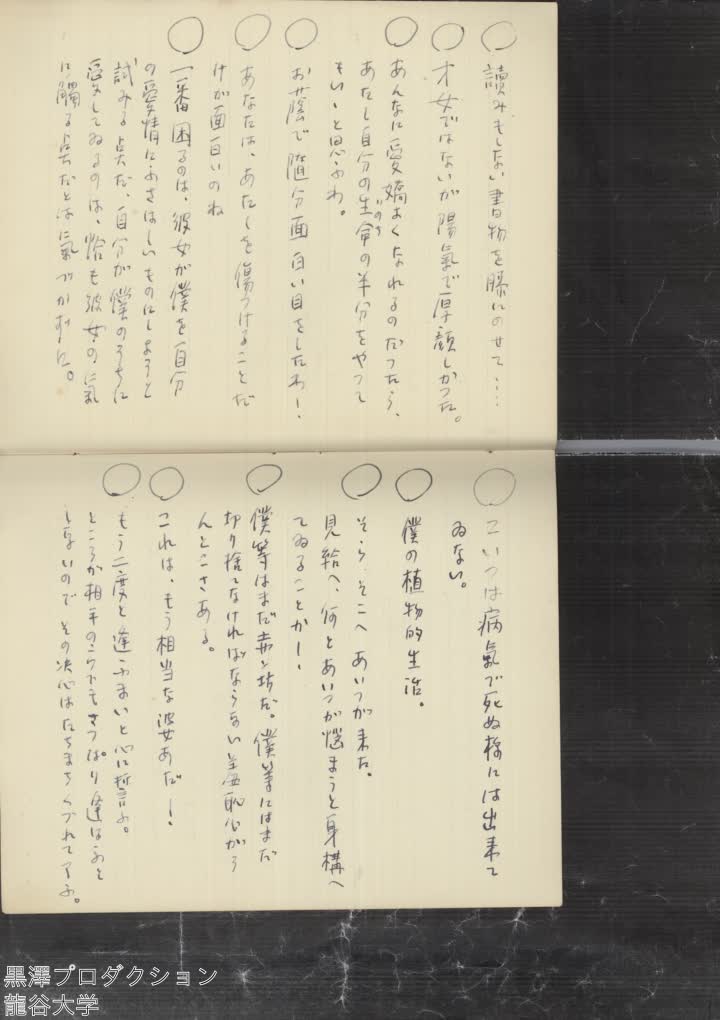 讀みもしない書物を膝にのせて……
才女ではないが陽氣で厚顔しかつた。
あんなに愛嬌よくなれるのだつたら、
あたし自分の生命の半分をやつて
いのち
もいゝと思ふわ。
お蔭で随分面白い目をしたわ！
あなたは、あたしを傷つけることだ
けが面白いのね
一番困るのは、彼女が僕を自分
の愛情にふさはしいものにしようと
試みる点だ、自分が僕のうちに
愛してゐるのは、恰も彼女の氣
に觸る点だとは氣づかずに。
こいつは病氣で死ぬ様には出来て
ゐない。
僕の植物的生活。
そら、そこへ あいつが来た。
見給へ、何とあいつが悩まうと身構へ
てゐることか！
僕等はまだ赤ン坊だ。僕等にはまだ
切り捨てなければならない羞恥心がう
んとこさある。
これは、もう相当な彼女あだ！
もう二度と逢ふまいと心に誓ふ。
ところが相手の方でもさつぱり逢はふと
しないので その決心はたちまちくづれて了ふ。
黒澤プロダクション
龍谷大学